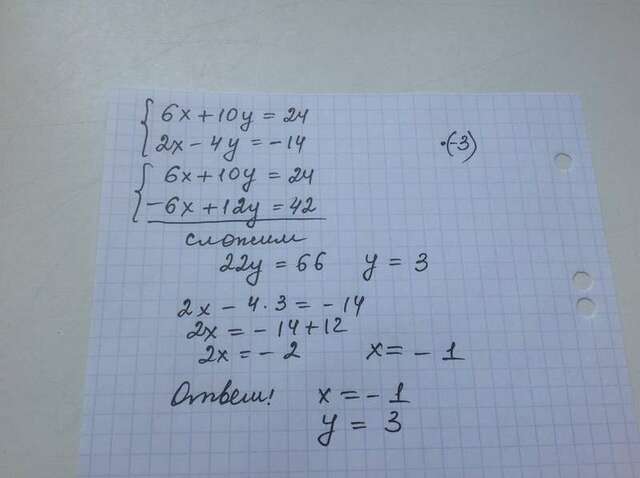 6x + 10y = 24
2x - 4y = -14 ·(-3)
6x + 10y = 24
-6x + 12y = 42
сложим
22y = 66 y = 3
2x - 4·3 = -14
2x = -14+12
2x = -2 x = -1
Ответ: x = -1
y = 3